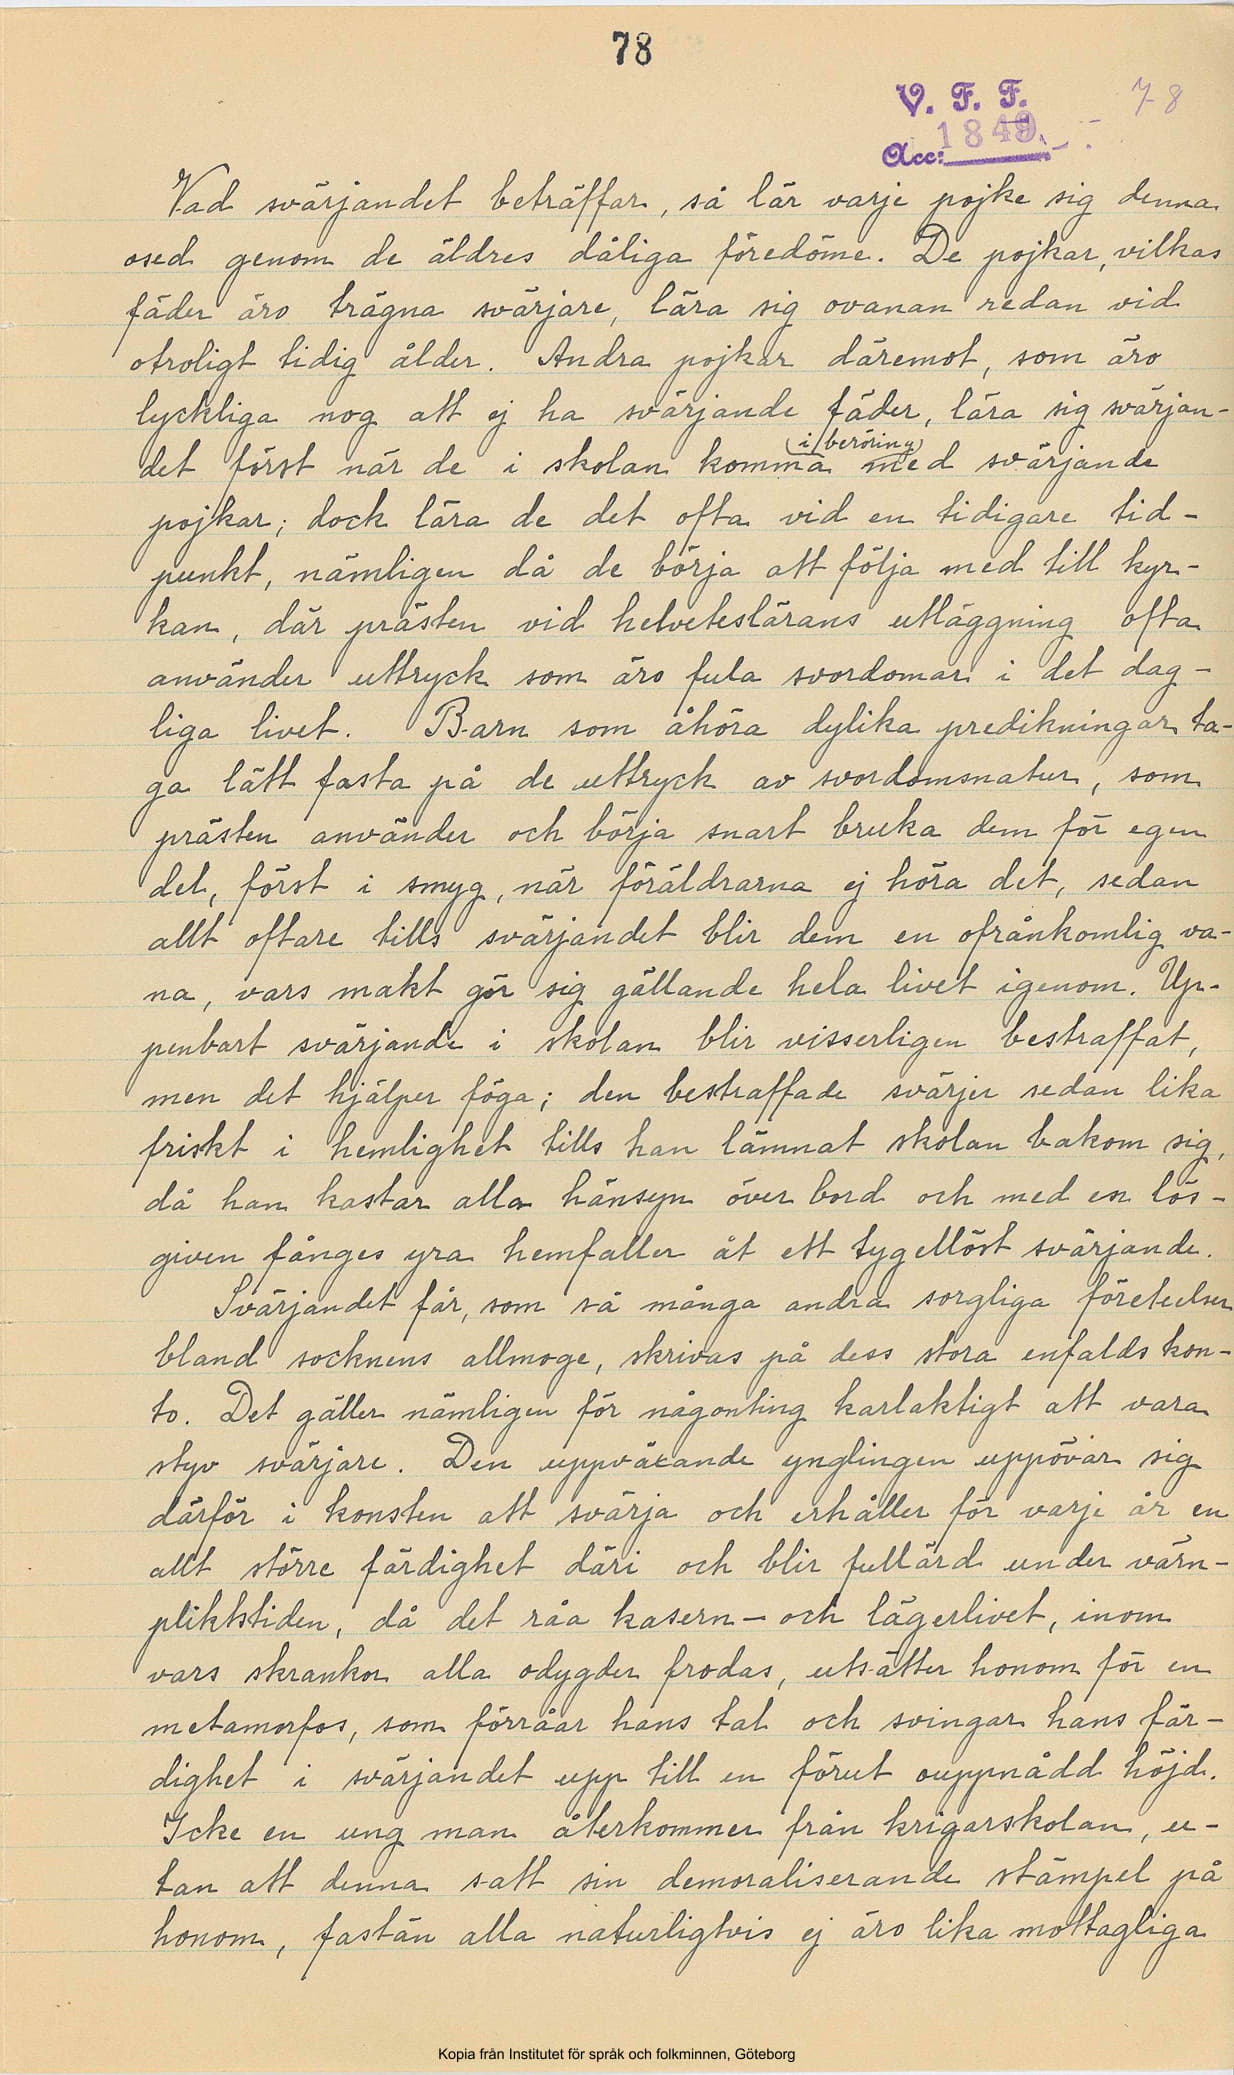 78
V. F. F.
78
1849.
Acc:
Vad svärjandet beträffar, så lär varje pojke sig denna
osed genom de äldres dåliga föredöme. De pojkar, vilkas
fäder äro trägna svärjare, lära sig ovanan redan vid
otroligt tidig ålder. Andra pojkar däremot, som äro
lyckliga nog att ej ha svärjande fäder, lära sig svärjan-
(i beröring)
det först när de i skolan komma med svärjande
pojkar; dock lära de det ofta vid en tidigare tid-
punkt, nämligen då de börja att följa med till kyr-
kan, där prästen vid helveteslärans utläggning ofta
använder uttryck som äro fula svordomar i det dag-
liga livet. Barn som åhöra dylika predikningar ta-
ga lätt fasta på de uttryck av svordomsnatur, som
prästen använder och börja snart bruka dem för egen
del, först i smyg, när föräldrarna ej höra det, sedan
allt oftare tills svärjandet blir dem en ofrånkomlig va-
na, vars makt gör sig gällande hela livet igenom. Up-
penbart svärjande i skolan blir visserligen bestraffat,
men det hjälper föga; den bestraffade svärjer sedan lika
friskt i hemlighet tills han lämnat skolan bakom sig,
då han kastar alla hänsyn över bord och med en lös-
given fånges yra hemfaller åt ett tygellöst svärjande.
Svärjandet får, som så många andra sorgliga företeelser
bland socknens allmoge, skrivas på dess stora enfalds kon-
to. Det gäller nämligen för någonting karlaktigt att vara
styv svärjare. Den uppväxande ynglingen uppövar sig
därför i konsten att svärja och erhåller för varje år en
allt större färdighet däri och blir fullärd under värn-
pliktstiden, då det råa kasern- och lägerlivet, inom
vars skrankor alla odygder frodas, utsätter honom för en
metamorfos, som förråar hans tal och svingar hans fär-
dighet i svärjandet upp till en förut ouppnådd höjd.
Icke en ung man återkommer från krigarskolan, u-
tan att denna satt sin demoraliserande stämpel på
honom, fastän alla naturligtvis ej äro lika mottagliga
Kopia från Institutet för språk och folkminnen, Göteborg